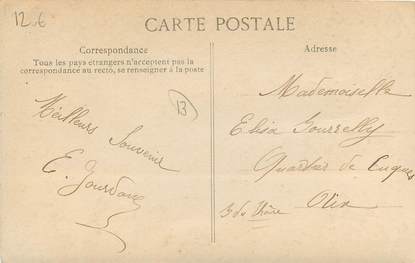 12.6
CARTE POSTALE
Correspondance
Tous les pays étrangers n'acceptent pas la
correspondance au recto, se renseigner à la poste
13
Meilleurs Souvenir
E. Jourdan
Adresse
Mademoiselle
Elisa
Quartier de Cuques
Aix
B du Rhône